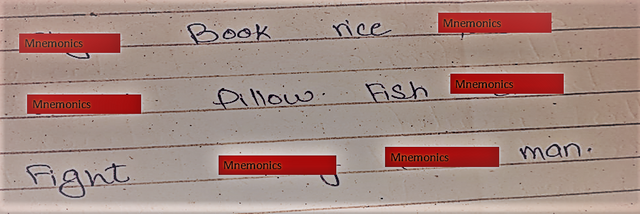 Mnemonics Book rice Mnemonics
Mnemonics Pillow. Fish Mnemonics
Fight Mnemonics Mnemonics man.